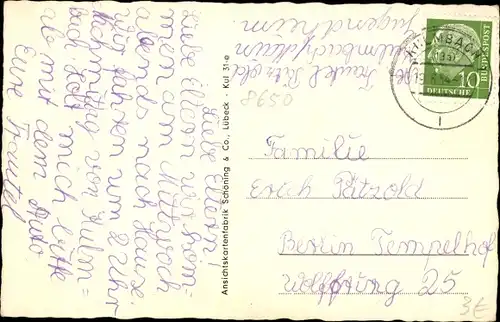 Liebe Eltern
Liebe Eltern wir kom=
men am Mittwoch
abends nach Hause.
Wir fahren um 2 Uhr
Nachmittag von Kulm=
bach. Holt mich bitte
ab mit dem Auto
Eure Traudel
Traudel Pätzold
Kulmbach/Main
Jugendheim
8650
KULMBACH
10
DEUTSCHE BUNDESPOST
Ansichtskartenfabrik Schöning & Co., Lübeck · Kul 31-e
Familie
Erich Pätzold
Berlin Tempelhof
Wolffring 25
3€